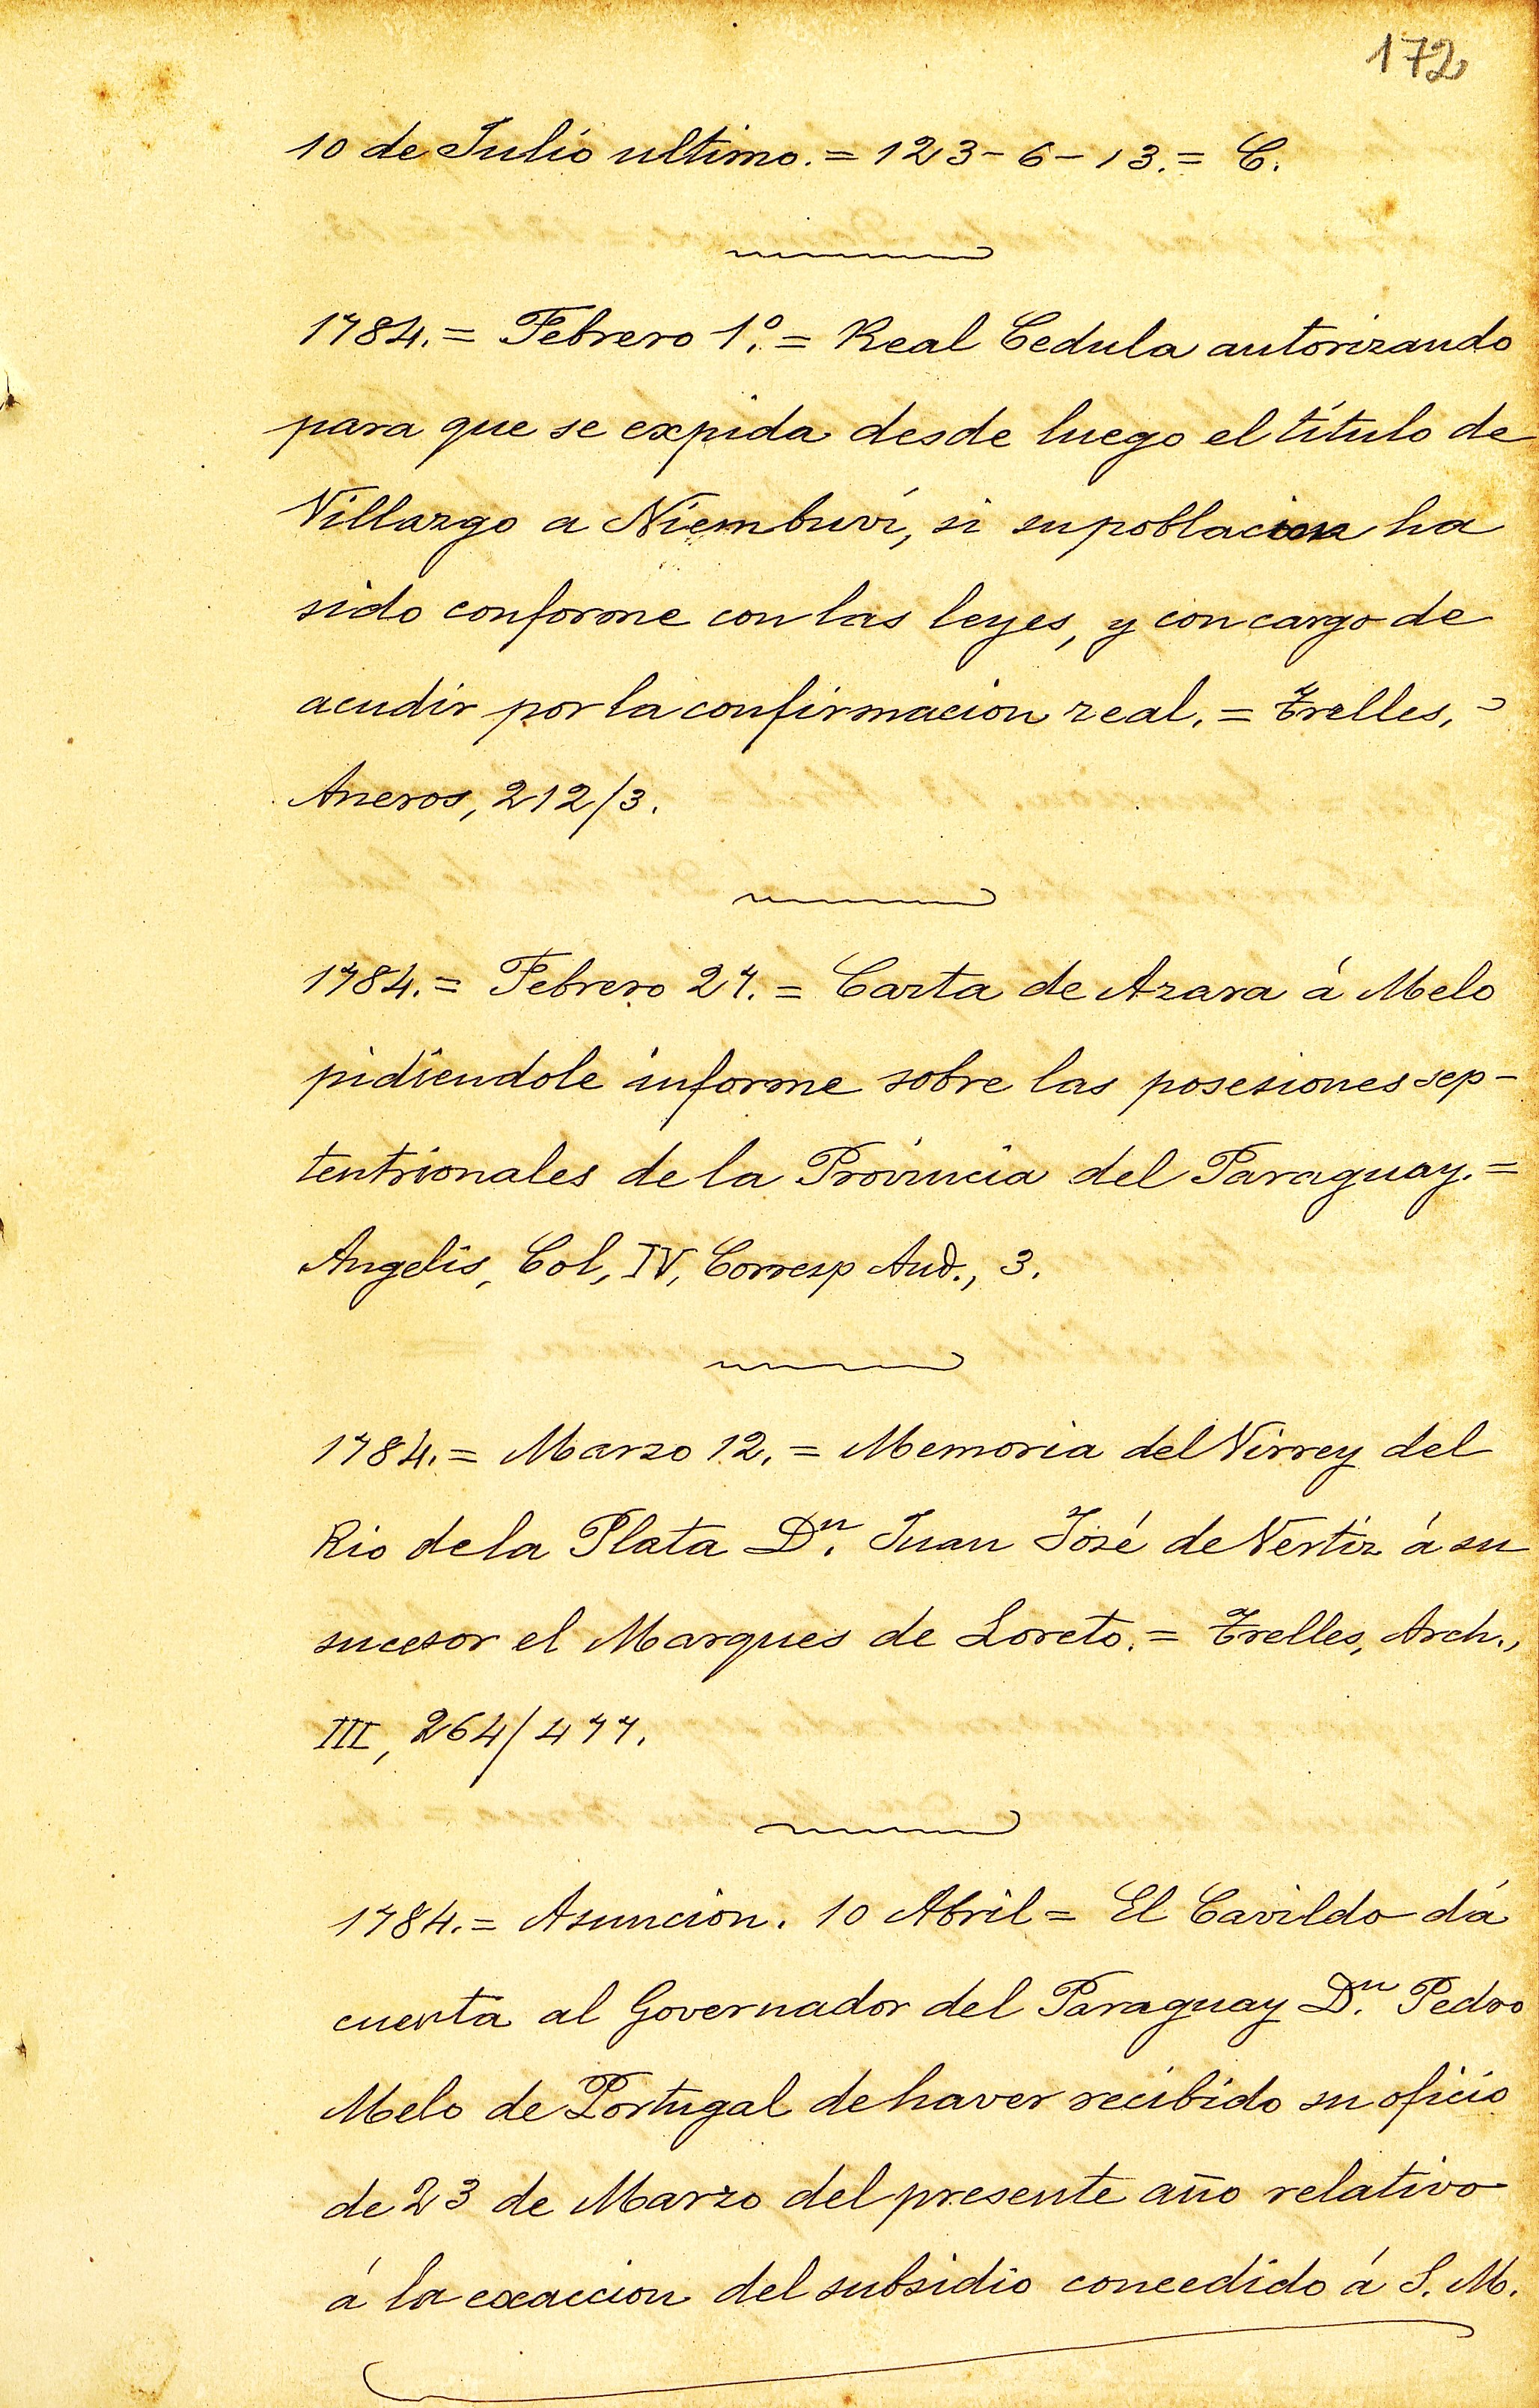 172
10 de Julio ultimo. = 123-6-13. = C.
1784. = Febrero 1º. = Real Cedula autorizando
para que se expida desde luego el título de
Villazgo a Niembuví, si su poblacion ha
sido conforme con las leyes, y con cargo de
acudir por la confirmacion real. = Trelles, =
Anexos, 212/3.
1784. = Febrero 27. = Carta de Azara á Melo
pidiendole informe sobre las posesiones sep-
tentrionales de la Provincia del Paraguay. =
Angelis, Col, IV, Corresp And., 3.
1784. = Marzo 12. = Memoria del Virrey del
Rio de la Plata Dn. Juan José de Vertiz á su
sucesor el Marques de Loreto. = Trelles, Arch.,
III, 264/477.
1784. = Asuncion. 10 Abril = El Cavildo dá
cuenta al Governador del Paraguay Dn. Pedro
Melo de Portugal de haver recibido su oficio
de 23 de Marzo del presente año relativo
á la exaccion del subsidio concedido á S. M.